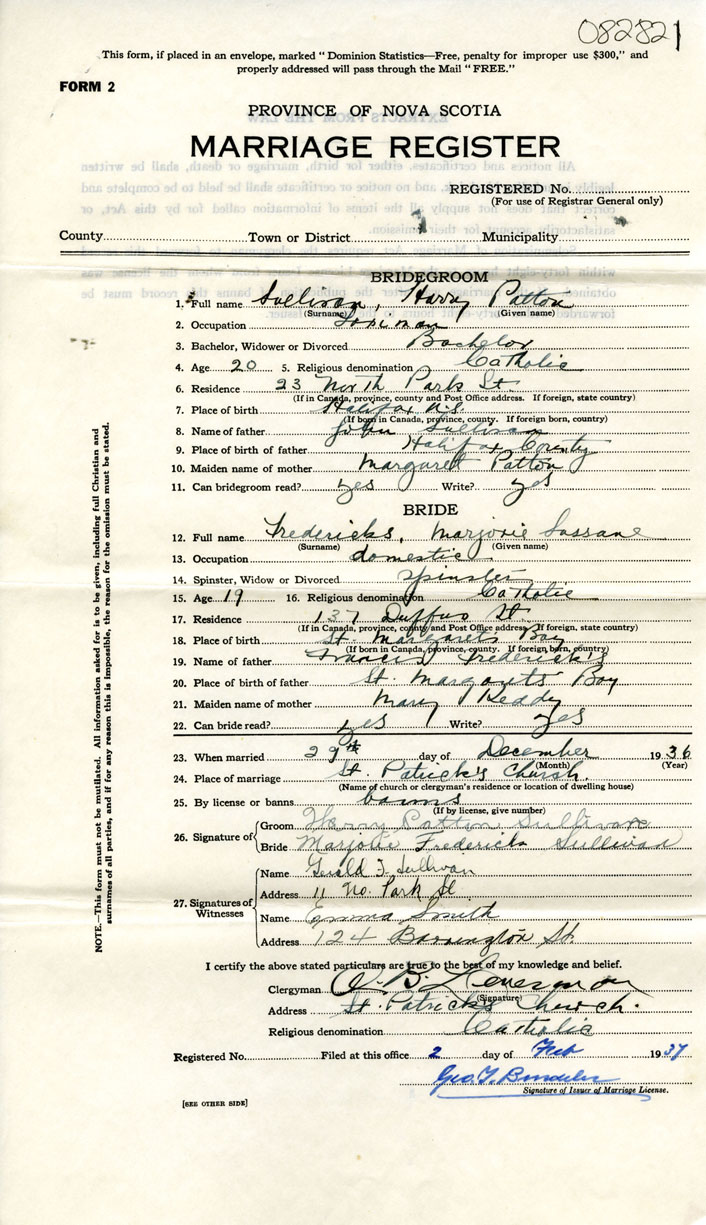 082821
This form, if placed in an envelope, marked "Dominion Statistics—Free, penalty for improper use $300," and
properly addressed will pass through the Mail "FREE."
FORM 2
PROVINCE OF NOVA SCOTIA
MARRIAGE REGISTER
REGISTERED No.
(For use of Registrar General only)
County Town or District Municipality
BRIDEGROOM
1. Full name Sullivan, Harry Patton
(Surname) (Given name)
2. Occupation
3. Bachelor, Widower or Divorced Bachelor
4. Age 20 5. Religious denomination Catholic
6. Residence 23 North Park St.
(If in Canada, province, county and Post Office address. If foreign, state country)
7. Place of birth Halifax N.S.
(If born in Canada, province, county. If foreign born, country)
8. Name of father John Sullivan
9. Place of birth of father Halifax County
10. Maiden name of mother Margaret Patton
11. Can bridegroom read? yes Write? yes
BRIDE
12. Full name Fredericks, Marjorie
(Surname) (Given name)
13. Occupation domestic
14. Spinster, Widow or Divorced Spinster
15. Age 19 16. Religious denomination Catholic
17. Residence 137 Duffus St
(If in Canada, province, county and Post Office address. If foreign, state country)
18. Place of birth St. Margarets Bay
(If born in Canada, province, county. If foreign born, country)
19. Name of father Francis Fredericks
20. Place of birth of father St. Margarets Bay
21. Maiden name of mother Mary Keddy
22. Can bride read? yes Write? yes
23. When married 29th day of December 1936
(Month) (Year)
24. Place of marriage St. Patrick's Church.
(Name of church or clergyman's residence or location of dwelling house)
25. By license or banns banns
(If by license, give number)
26. Signature of Groom Harry Patton Sullivan
Bride Marjorie Fredericks Sullivan
27. Signatures of Witnesses
Name Gerald J. Sullivan
Address 11 No. Park St
Name Emma Smith
Address 124 Barrington St.
I certify the above stated particulars are true to the best of my knowledge and belief.
Clergyman
(Signature)
Address St. Patricks Church.
Religious denomination Catholic
Registered No. Filed at this office 2 day of Feb 1937
Geo. T.
Signature of Issuer of Marriage License.
[SEE OTHER SIDE]
NOTE.—This form must not be mutilated. All information asked for is to be given, including full Christian and
surnames of all parties, and if for any reason this is impossible, the reason for the omission must be stated.